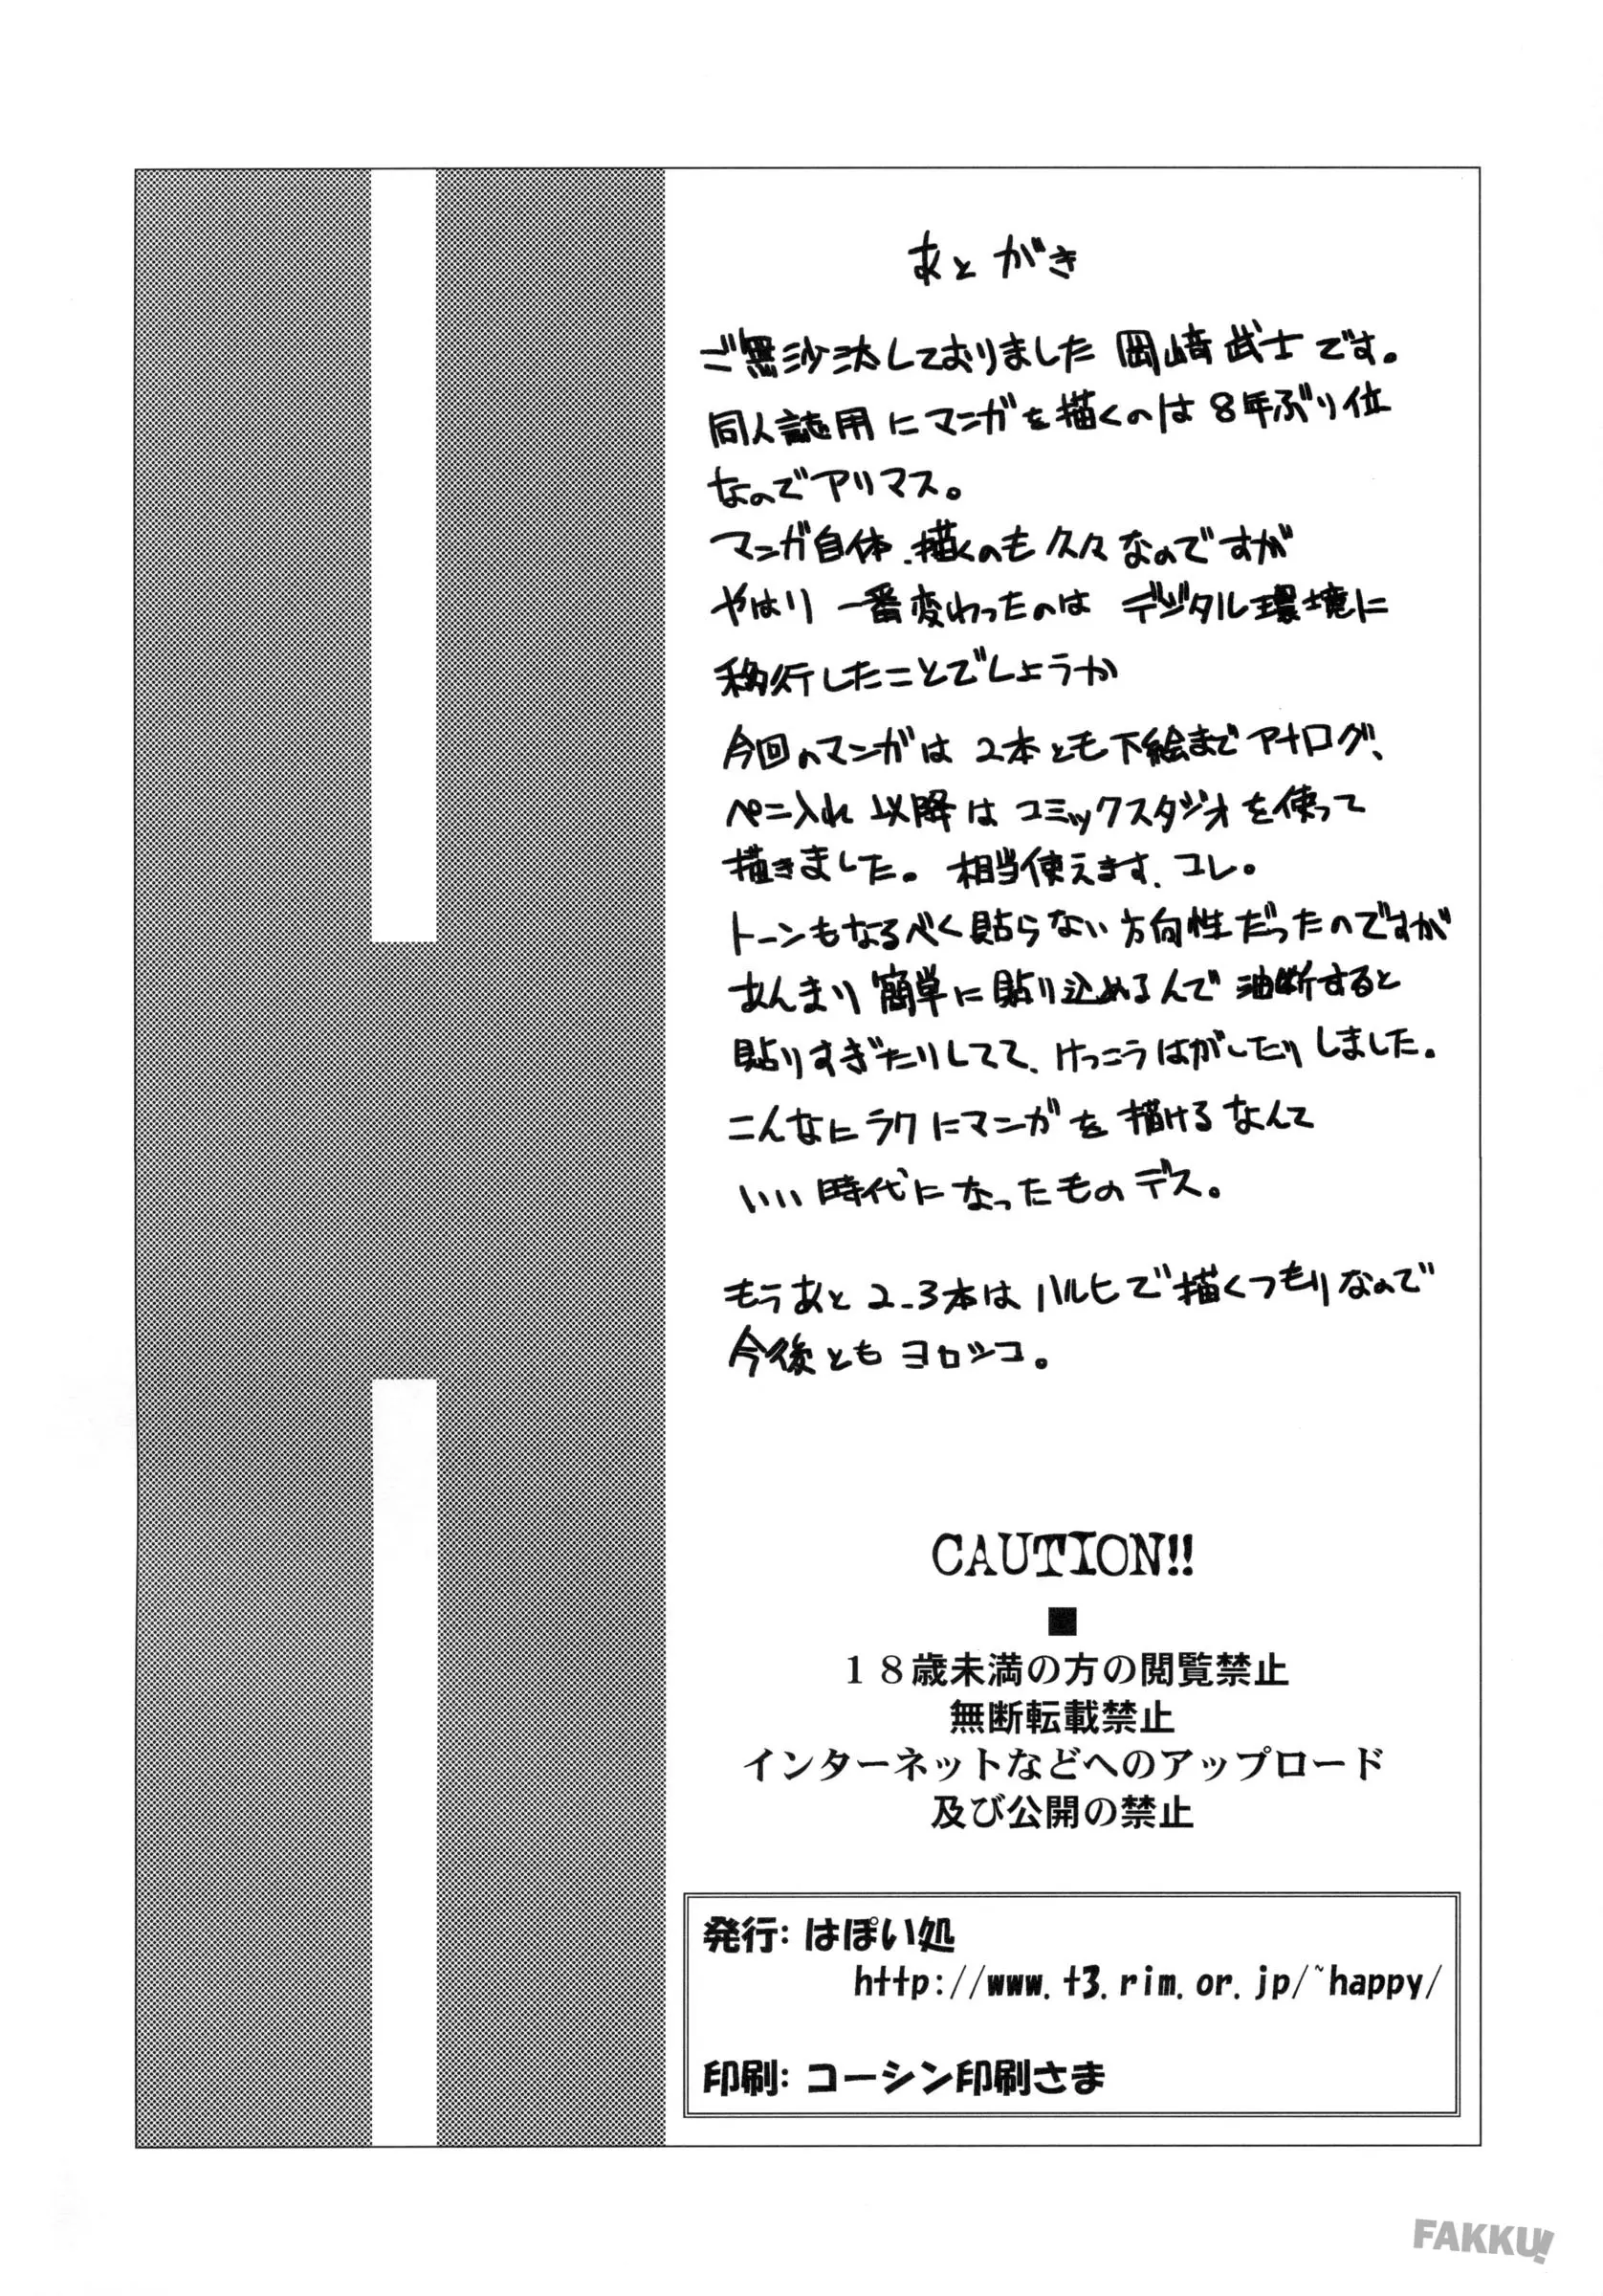 あとがき
ご無沙汰しておりました 岡崎武士です。
同人誌用にマンガを描くのは8年ぶり位
なのでアリマス。
マンガ自体、描くのも久々なのですが
やはり 一番変わったのは デジタル環境に
移行したことでしょうか
今回のマンガは 2本とも下絵までアナログ、
ペン入れ 以降は コミックスタジオを使って
描きました。 相当使えます、コレ。
トーンもなるべく貼らない方向性だったのですが
あんまり 簡単に貼り込めるんで 油断すると
貼りすぎたりしてて、けっこうはがしたりしました。
こんなにラクにマンガを描けるなんて
いい時代になったものデス。
もうあと 2-3本は ハルヒで描くつもりなので
今後とも ヨロシコ。
CAUTION!!
■
18歳未満の方の閲覧禁止
無断転載禁止
インターネットなどへのアップロード
及び公開の禁止
発行: はぽい処
http://www.t3.rim.or.jp/~happy/
印刷: コーシン印刷さま
FAKKU!